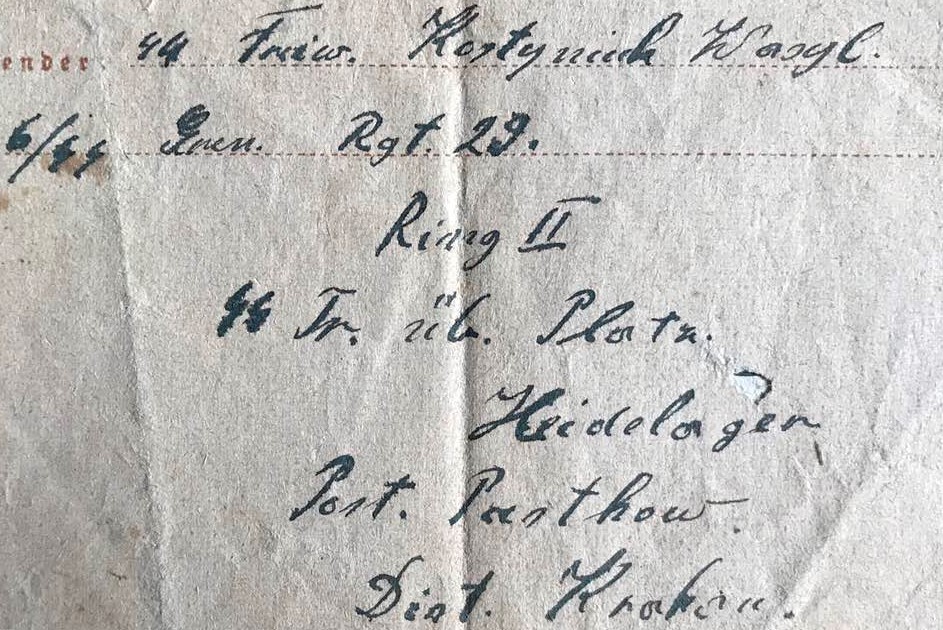 ender ᛋᛋ Freiw. Kostyniuk Wasyl.
6/ᛋᛋ Gren. Rgt. 29.
Ring II
ᛋᛋ Tr. üb. Platz.
Heidelager
Post. Pusthow.
Dist. Krakau.